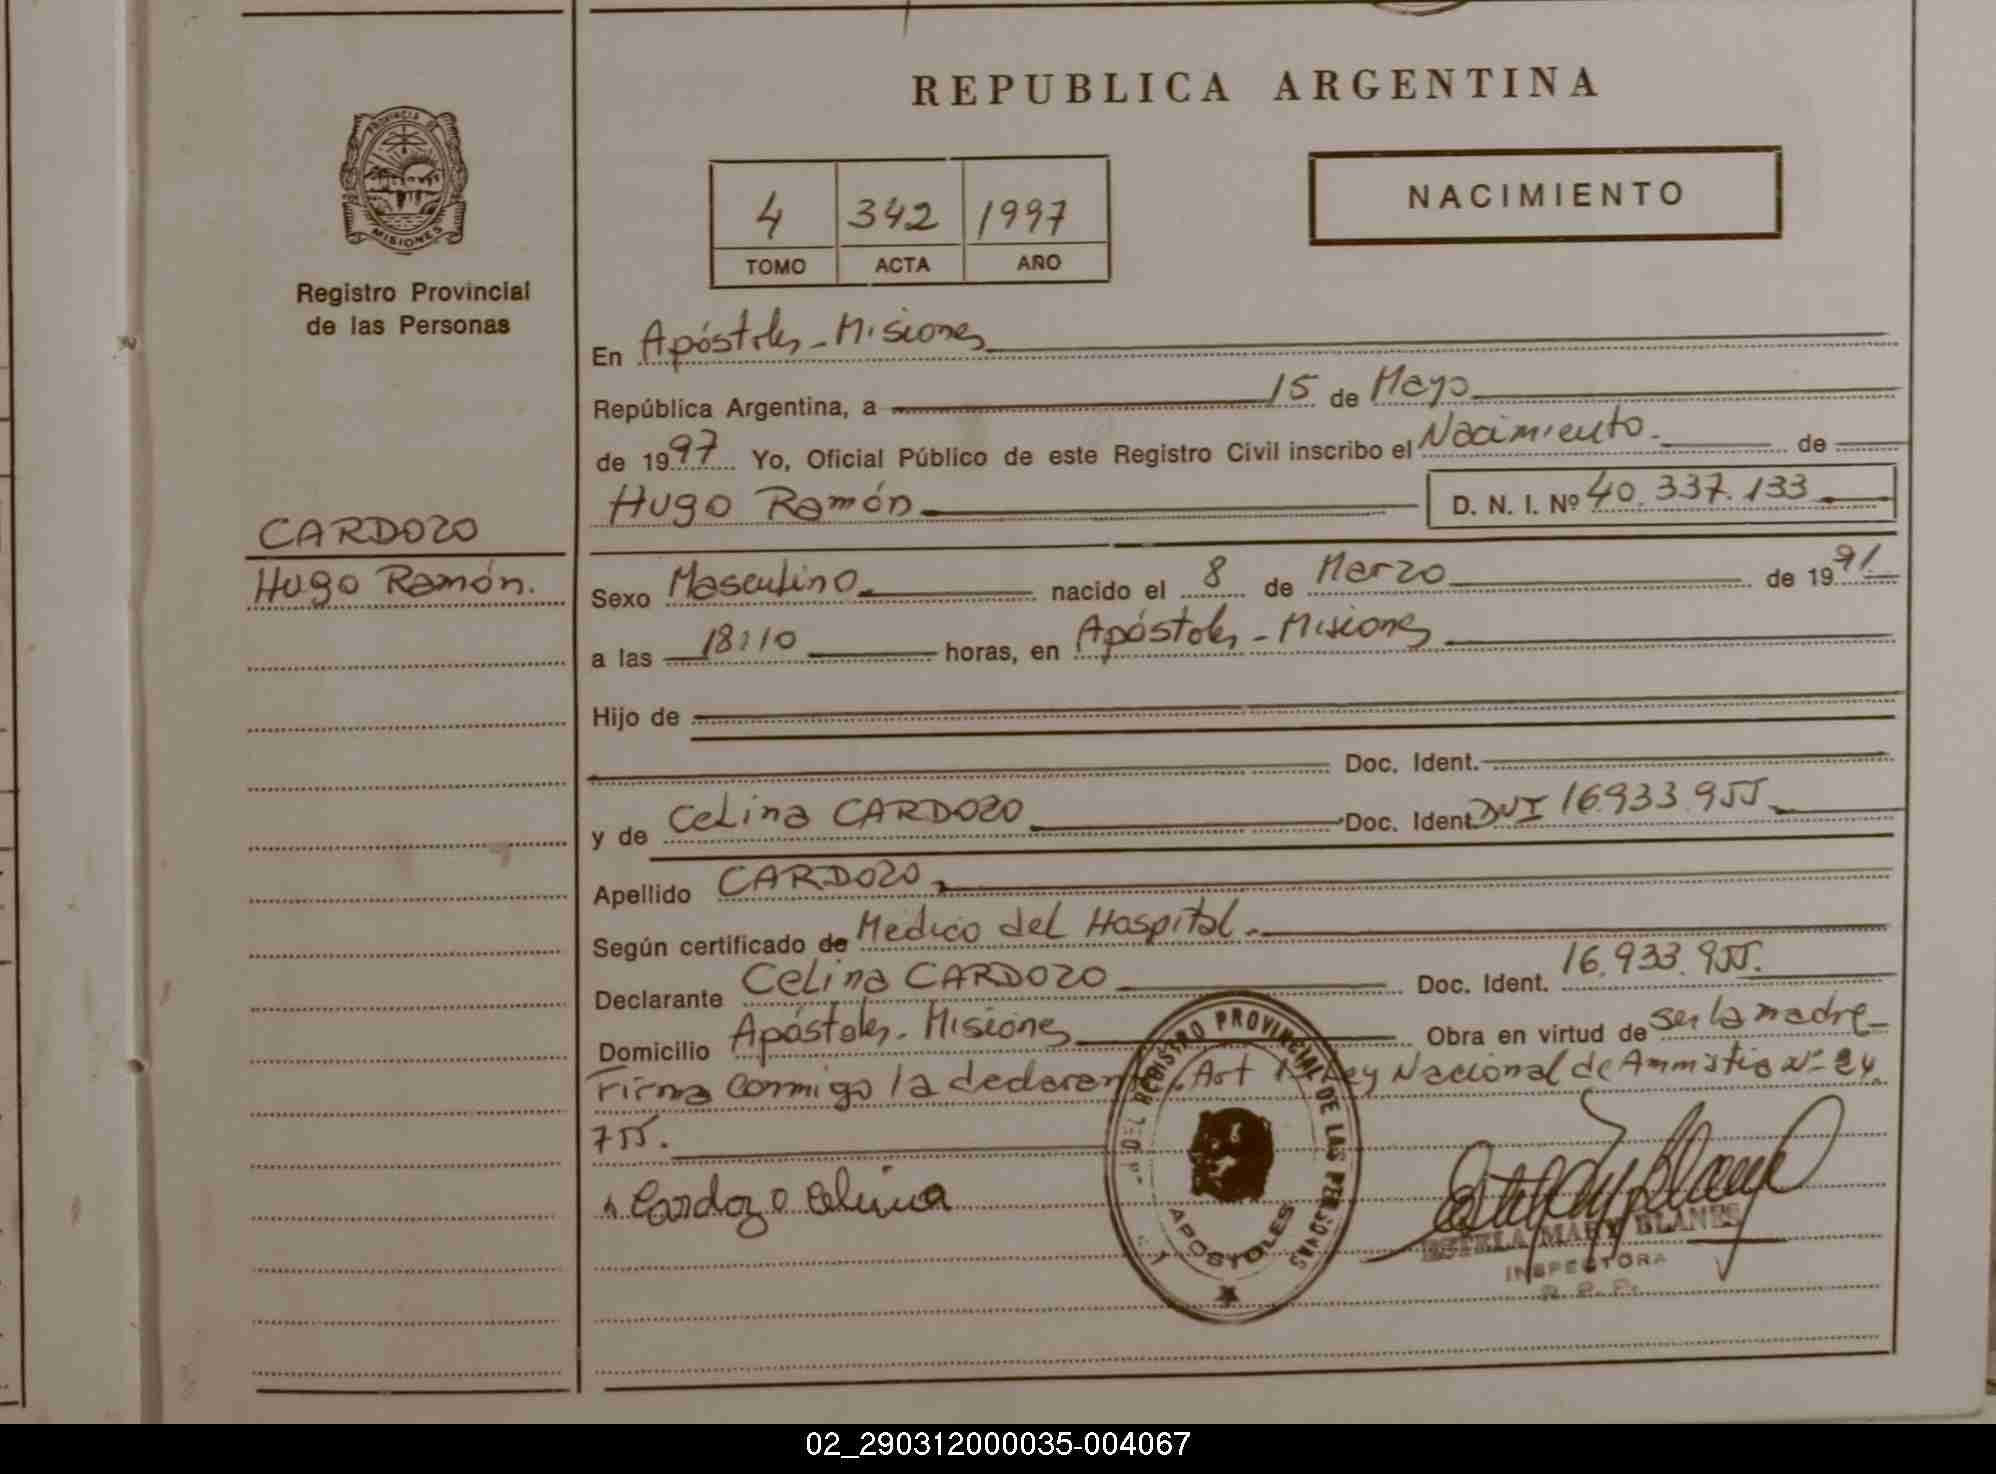 REPUBLICA ARGENTINA
PROVINCIA DE
MISIONES
Registro Provincial
de las Personas
4 342 1997
TOMO ACTA AÑO
NACIMIENTO
CARDOZO
Hugo Ramón.
En Apóstoles - Misiones
República Argentina, a 15 de Mayo
de 1997 Yo, Oficial Público de este Registro Civil inscribo el Nacimiento. de
Hugo Ramón D. N. I. Nº 40.337.133
Sexo Masculino nacido el 8 de Marzo de 1991
a las 18:10 horas, en Apóstoles - Misiones
Hijo de
Doc. Ident.
y de Celina CARDOZO Doc. Ident. DNI 16.933.955
Apellido CARDOZO
Según certificado de Medico del Hospital.
Declarante Celina CARDOZO Doc. Ident. 16.933.955.
Domicilio Apóstoles - Misiones Obra en virtud de ser la madre
Firma conmigo la declarante. Art Ley Nacional de Ammistia Nº 24
755.
Cardozo Celina
REGISTRO PROVINCIAL DE LAS PERSONAS
APOSTOLES
ESTELA MARY BLANES
INSPECTORA
R. P. P.
02_290312000035-004067